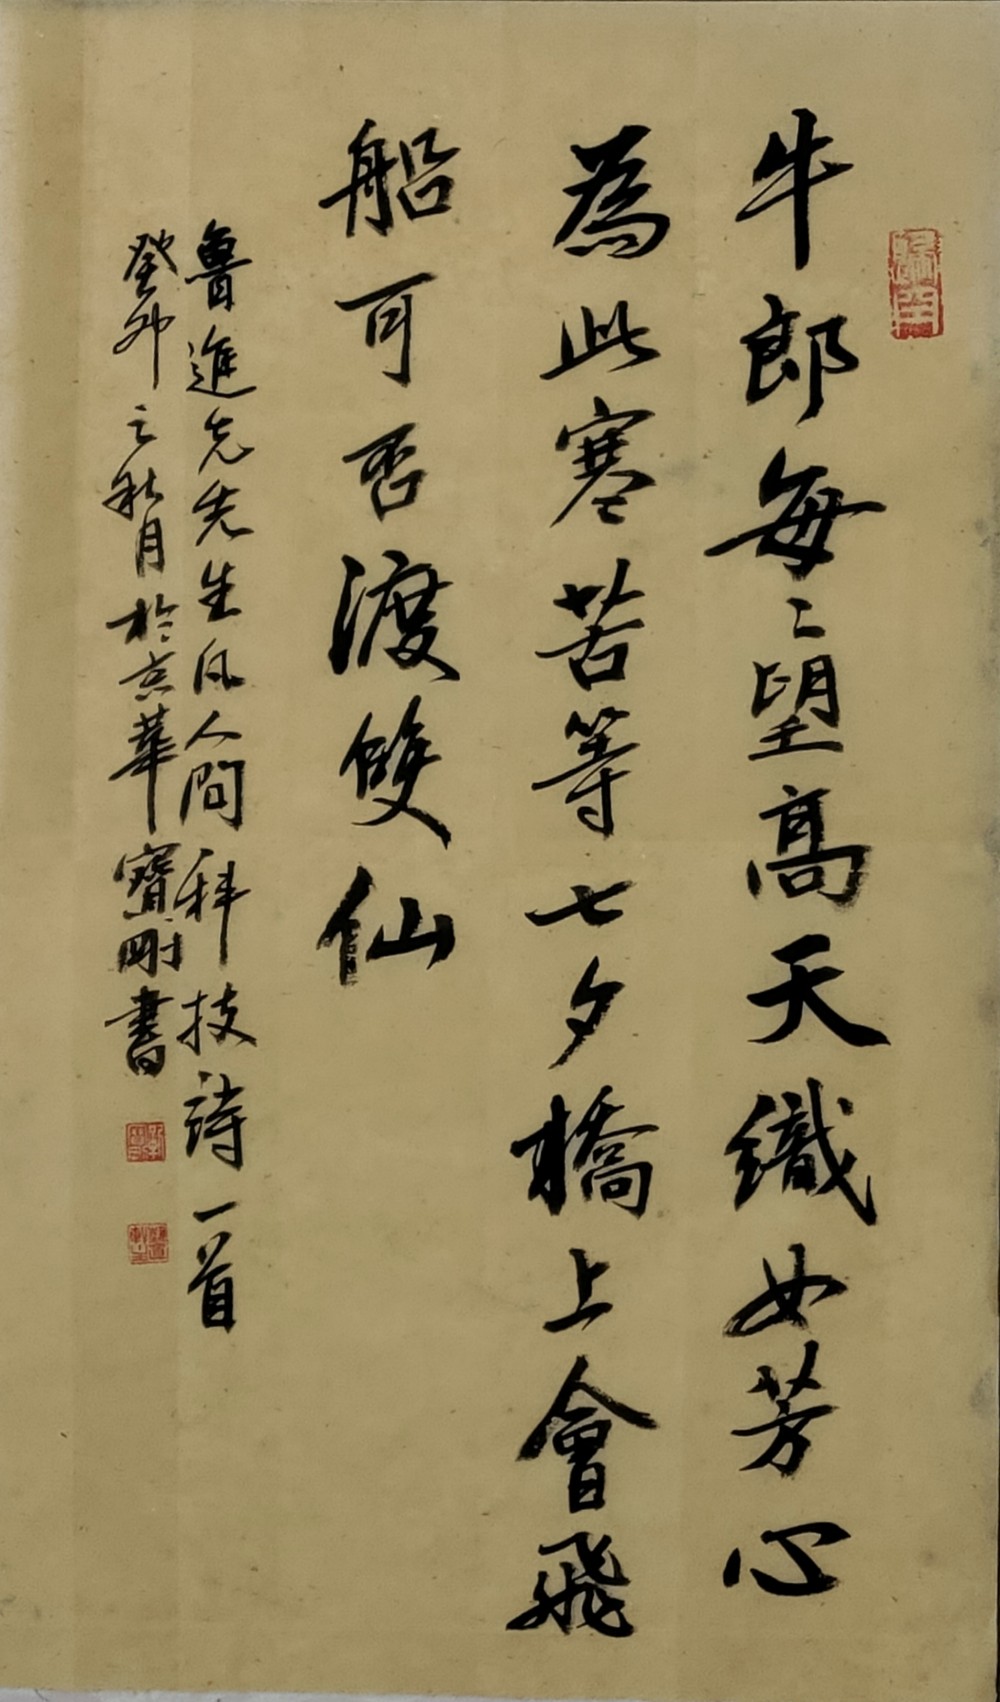 牛郎每〻望高天織女芳心
為此寒苦等七夕橋上會飛
船可否渡雙仙
魯進先先生凡人間科技詩一首
癸卯之秋月於京華寶剛書